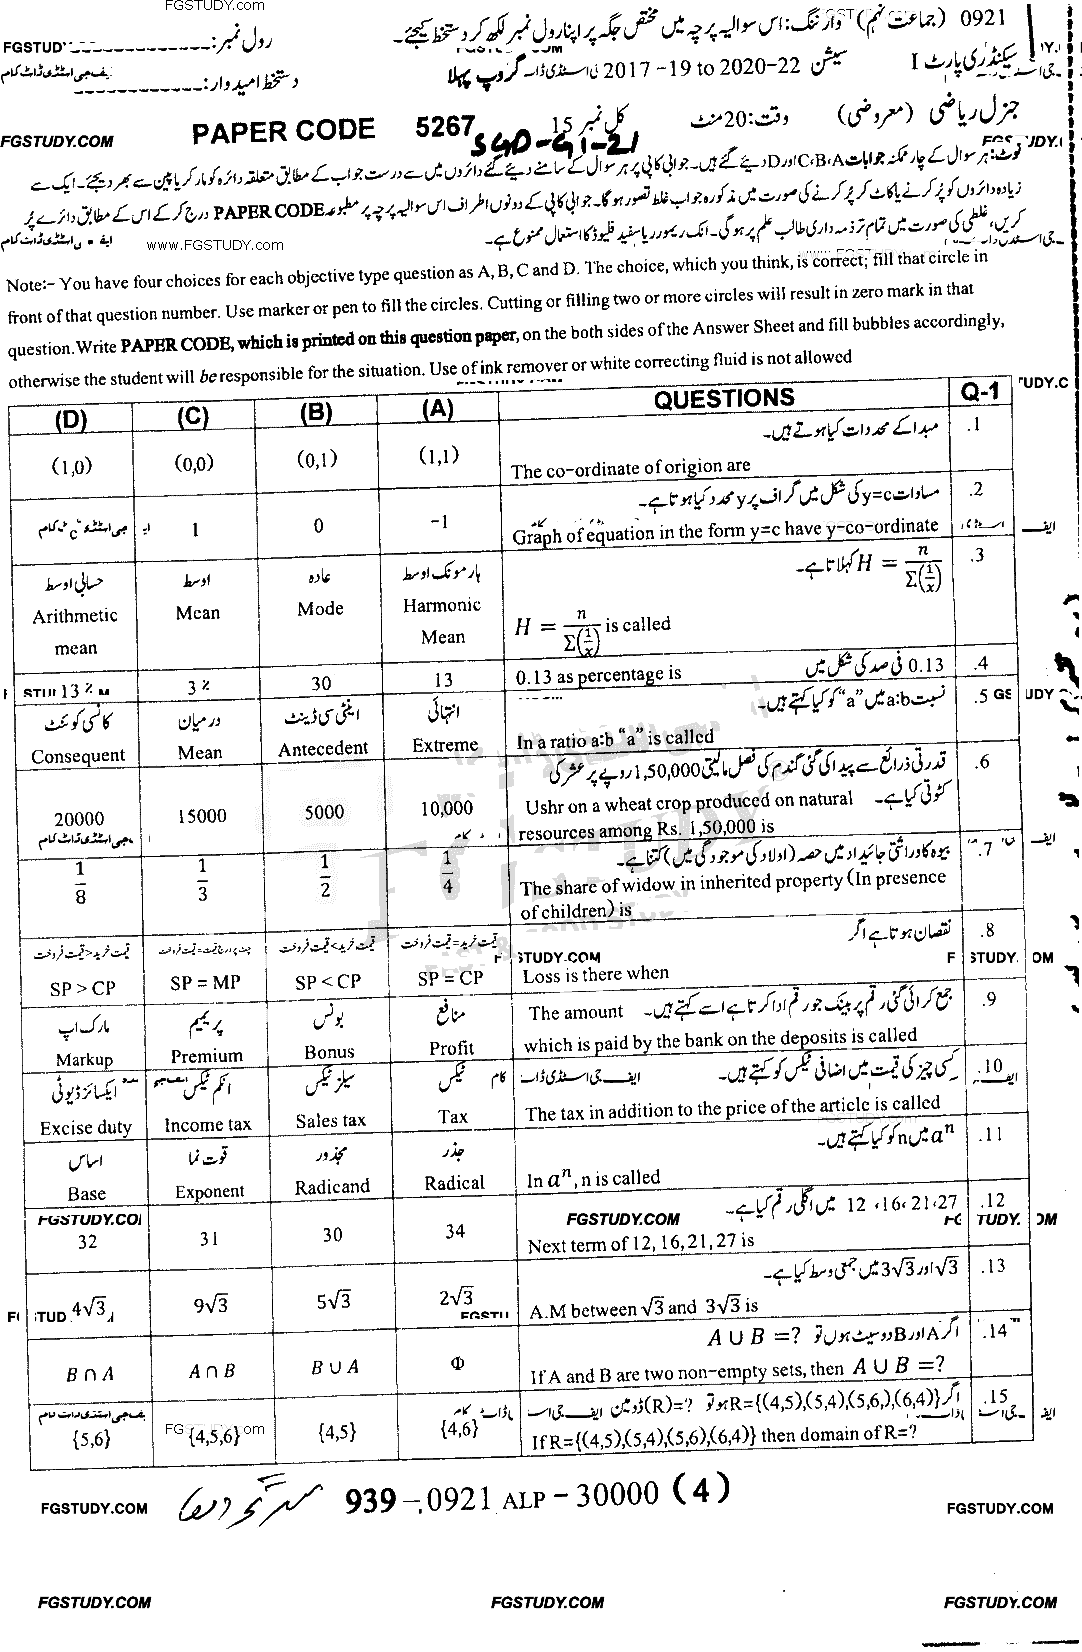 FGSTUDY.COM
0921 (جماعت نہم) وارننگ: اس سوالیہ پرچہ میں مختص جگہ پر اپنا رول نمبر لکھ کر دستخط کیجئے۔
رول نمبر:
سیکنڈری پارٹ I سیشن 2017-19 to 2020-22 گروپ پہلا
دستخط امیدوار:
جنرل ریاضی (معروضی) وقت: 20 منٹ کل نمبر 15
PAPER CODE 5267
SGD-G1-21
FGSTUDY.COM
نوٹ: ہر سوال کے چار ممکنہ جوابات C،B،A اور D دیئے گئے ہیں۔ جوابی کاپی پر ہر سوال کے سامنے دیئے گئے دائروں میں سے درست جواب کے مطابق متعلقہ دائرہ کو مارکر یا پین سے بھر دیجئے۔ ایک سے
زیادہ دائروں کو پُر کرنے یا کاٹ کر پُر کرنے کی صورت میں مذکورہ جواب غلط تصور ہوگا۔ جوابی کاپی کے دونوں اطراف اس سوالیہ پرچہ پر مطبوعہ PAPER CODE درج کر کے اس کے مطابق دائرے پُر
کریں، غلطی کی صورت میں تمام تر ذمہ داری طالب علم پر ہوگی۔ انک ریموور یا سفید فلیوڈ کا استعمال ممنوع ہے۔
www.FGSTUDY.com
Note:- You have four choices for each objective type question as A, B, C and D. The choice, which you think, is correct; fill that circle in
front of that question number. Use marker or pen to fill the circles. Cutting or filling two or more circles will result in zero mark in that
question. Write PAPER CODE, which is printed on this question paper, on the both sides of the Answer Sheet and fill bubbles accordingly,
otherwise the student will be responsible for the situation. Use of ink remover or white correcting fluid is not allowed
(D) (C) (B) (A) QUESTIONS Q-1
مبدا کے محددات کیا ہوتے ہیں۔ .1
(1,0) (0,0) (0,1) (1,1) The co-ordinate of origion are
مساوات y=c کی شکل میں گراف پر y محدد کیا ہوتا ہے۔ .2
c 1 0 -1 Graph of equation in the form y=c have y-co-ordinate
H = n/Σ(1/x) کہلاتا ہے۔ .3
حسابی اوسط اوسط عادہ ہارمونک اوسط
Arithmetic mean Mean Mode Harmonic Mean H = n/Σ(1/x) is called
0.13 فی صد کی شکل میں .4
13% 3% 30 13 0.13 as percentage is
نسبت a:b میں "a" کو کیا کہتے ہیں۔ .5
کانسی کوئنٹ درمیان اینٹی سی ڈینٹ انتہائی
Consequent Mean Antecedent Extreme In a ratio a:b "a" is called
قدرتی ذرائع سے پیدا کی گئی گندم کی فصل مالیتی 1,50,000 روپے پر عشر کی .6
کٹوتی کیا ہے۔ Ushr on a wheat crop produced on natural
20000 15000 5000 10,000 resources among Rs. 1,50,000 is
بیوہ کا وراثتی جائیداد میں حصہ (اولاد کی موجودگی میں) کتنا ہے۔ .7
1/8 1/3 1/2 1/4 The share of widow in inherited property (In presence
of children) is
نقصان ہوتا ہے اگر .8
قیمت خرید>قیمت فروخت قیمت خرید=قیمت فروخت
FGSTUDY.COM
SP > CP SP = MP SP < CP SP = CP Loss is there when
جمع کرائی گئی رقم پر بینک جو رقم ادا کرتا ہے اسے کہتے ہیں۔ The amount .9
مارک اپ پریمیم بونس منافع
Markup Premium Bonus Profit which is paid by the bank on the deposits is called
کسی چیز کی قیمت میں اضافی ٹیکس کو کہتے ہیں۔ .10
ایکسائز ڈیوٹی انکم ٹیکس سیلز ٹیکس ٹیکس
Excise duty Income tax Sales tax Tax The tax in addition to the price of the article is called
aⁿ میں n کو کیا کہتے ہیں۔ .11
اساس قوت نما مجذور جذر
Base Exponent Radicand Radical In aⁿ, n is called
12، 16، 21، 27 میں اگلی رقم کیا ہے۔ .12
FGSTUDY.COM
32 31 30 34 Next term of 12, 16, 21, 27 is
√3 اور 3√3 میں جمعی وسط کیا ہے۔ .13
4√3 9√3 5√3 2√3 A.M between √3 and 3√3 is
اگر A اور B دو سیٹ ہوں تو A ∪ B =? .14
B ∩ A A ∩ B B ∪ A Φ If A and B are two non-empty sets, then A ∪ B =?
اگر R={(4,5),(5,4),(5,6,),(6,4)} ہو تو ?=(R) ڈومین .15
{5,6} {4,5,6} {4,5} {4,6} If R={(4,5),(5,4),(5,6),(6,4)} then domain of R=?
939-0921 ALP-30000 (4)
FGSTUDY.COM FGSTUDY.COM
FGSTUDY.COM FGSTUDY.COM FGSTUDY.COM